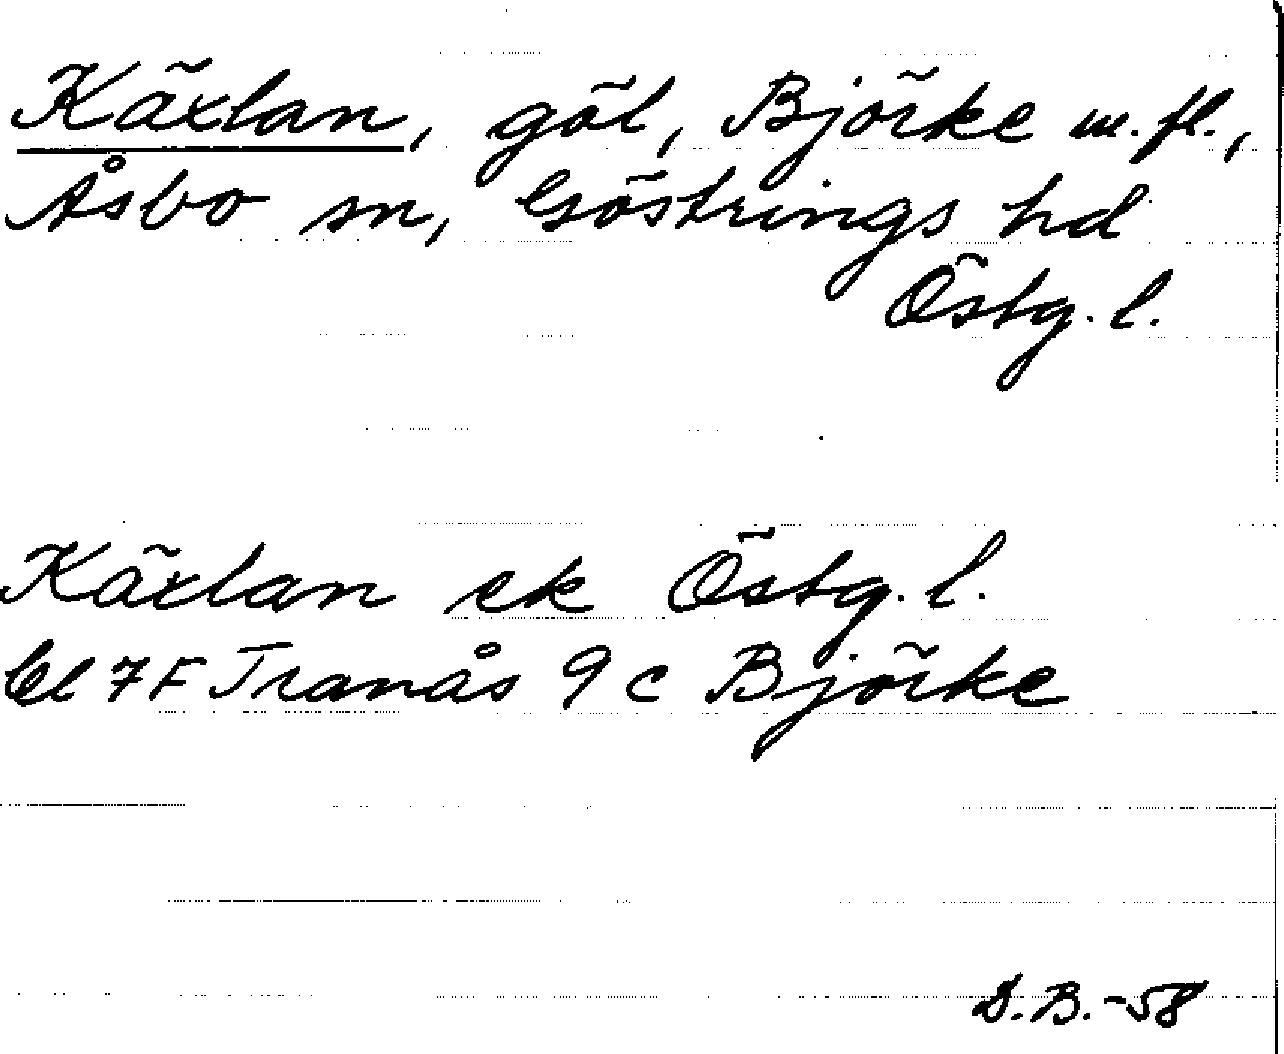 Käxlan, göl, Björke m.fl.,
Åsbo sn, Göstrings hd
Östg. l.
Käxlan ek Östg. l.
bl 7F Tranås 9c Björke
D.B.-58